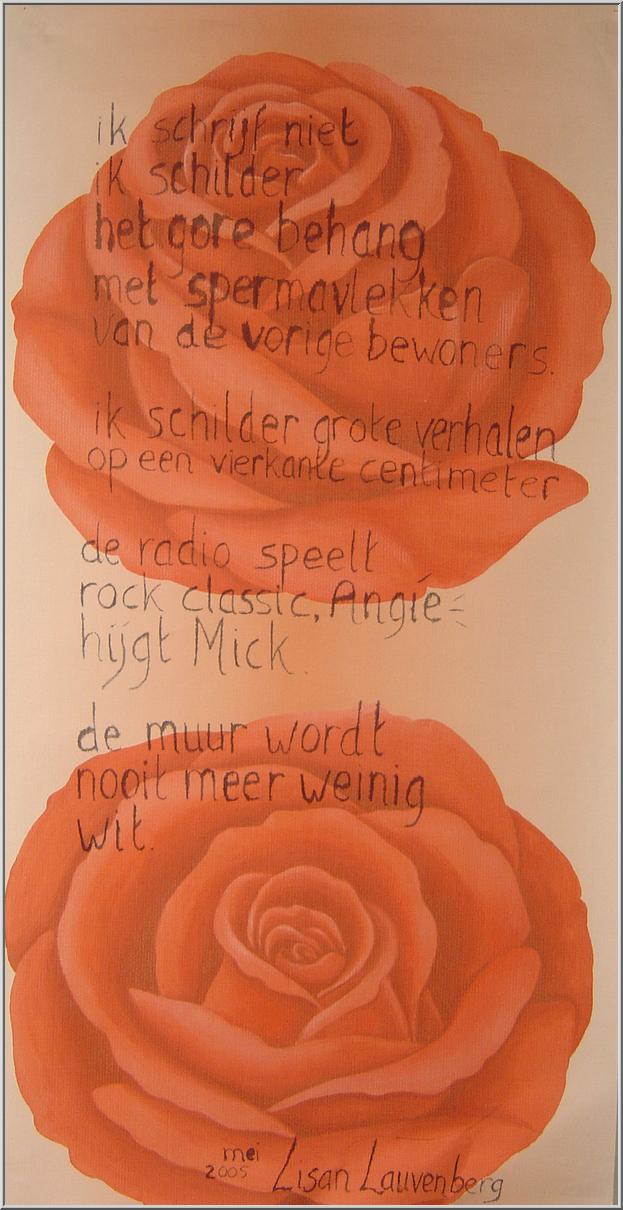 ik schrijf niet
ik schilder
het gore behang
met spermavlekken
van de vorige bewoners.
ik schilder grote verhalen
op een vierkante centimeter
de radio speelt
rock classic, Angie
hijgt Mick.
de muur wordt
nooit meer weinig
wit.
mei
2005 Lisan Lauvenberg